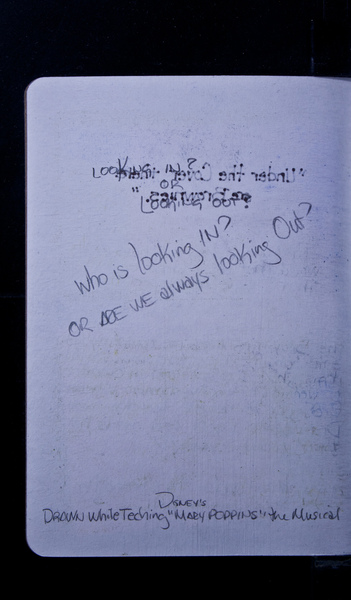 LOOKING IN?
OR
LOOKING OUT?
"Under the Cover
Who is looking IN?
OR ARE WE always looking Out?
DISNEY'S
DRAWN While Teching "MARY POPPINS" the Musical